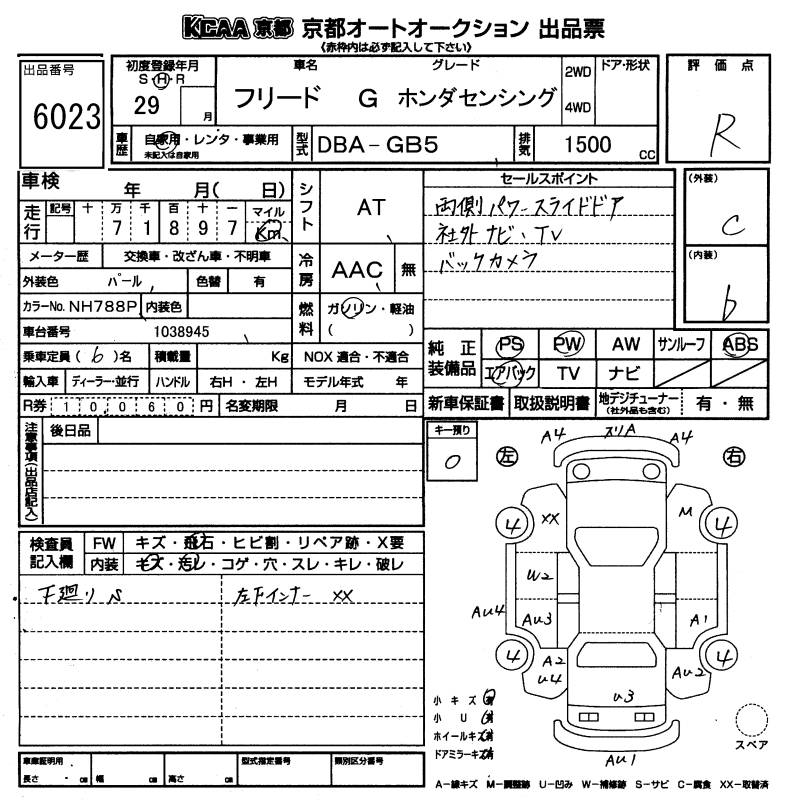 KCAA 京都 京都オートオークション 出品票
《赤枠内は必ず記入して下さい》
出品番号
6023
初度登録年月
S・H・R
29 月
車名 グレード
フリード G ホンダセンシング
2WD
4WD
ドア・形状
評価点
R
車歴
自家用・レンタ・事業用
未記入は自家用
型式
DBA-GB5
排気
1500 CC
車検 年 月( 日)
走行
記号 十 万 千 百 十 一 マイル
7 1 8 9 7 Km
シフト
AT
セールスポイント
両側パワースライドドア
社外ナビ・TV
バックカメラ
(外装)
C
(内装)
b
メーター歴 交換車・改ざん車・不明車
冷房
AAC 無
外装色 パール 色替 有
カラーNo. NH788P 内装色
燃料
ガソリン・軽油
( )
車台番号 1038945
乗車定員(6)名 積載量 Kg NOX 適合・不適合
輸入車 ディーラー・並行 ハンドル 右H・左H モデル年式 年
R券 10060円 名変期限 月 日
純正装備品
PS PW AW サンルーフ ABS
エアバック TV ナビ
新車保証書 取扱説明書 地デジチューナー(社外品も含む) 有・無
注意事項(出品店記入)
後日品
キー預り
0
左 右
A4 スリA A4
4 XX M 4
W2
AU4 AU3 A1
4 A2 U4 AU2 4
U3
AU1
スペア
検査員記入欄
FW キズ・飛石・ヒビ割・リペア跡・X要
内装 キズ・汚レ・コゲ・穴・スレ・キレ・破レ
下廻りS 左下インナー XX
小キズ 有
小U 有
ホイールキズ有
ドアミラーキズ有
車庫証明用 型式指定番号 類別区分番号
長さ ・ cm 幅 cm 高さ cm
A-線キズ M-調整跡 U-凹み W-補修跡 S-サビ C-腐食 XX-取替済